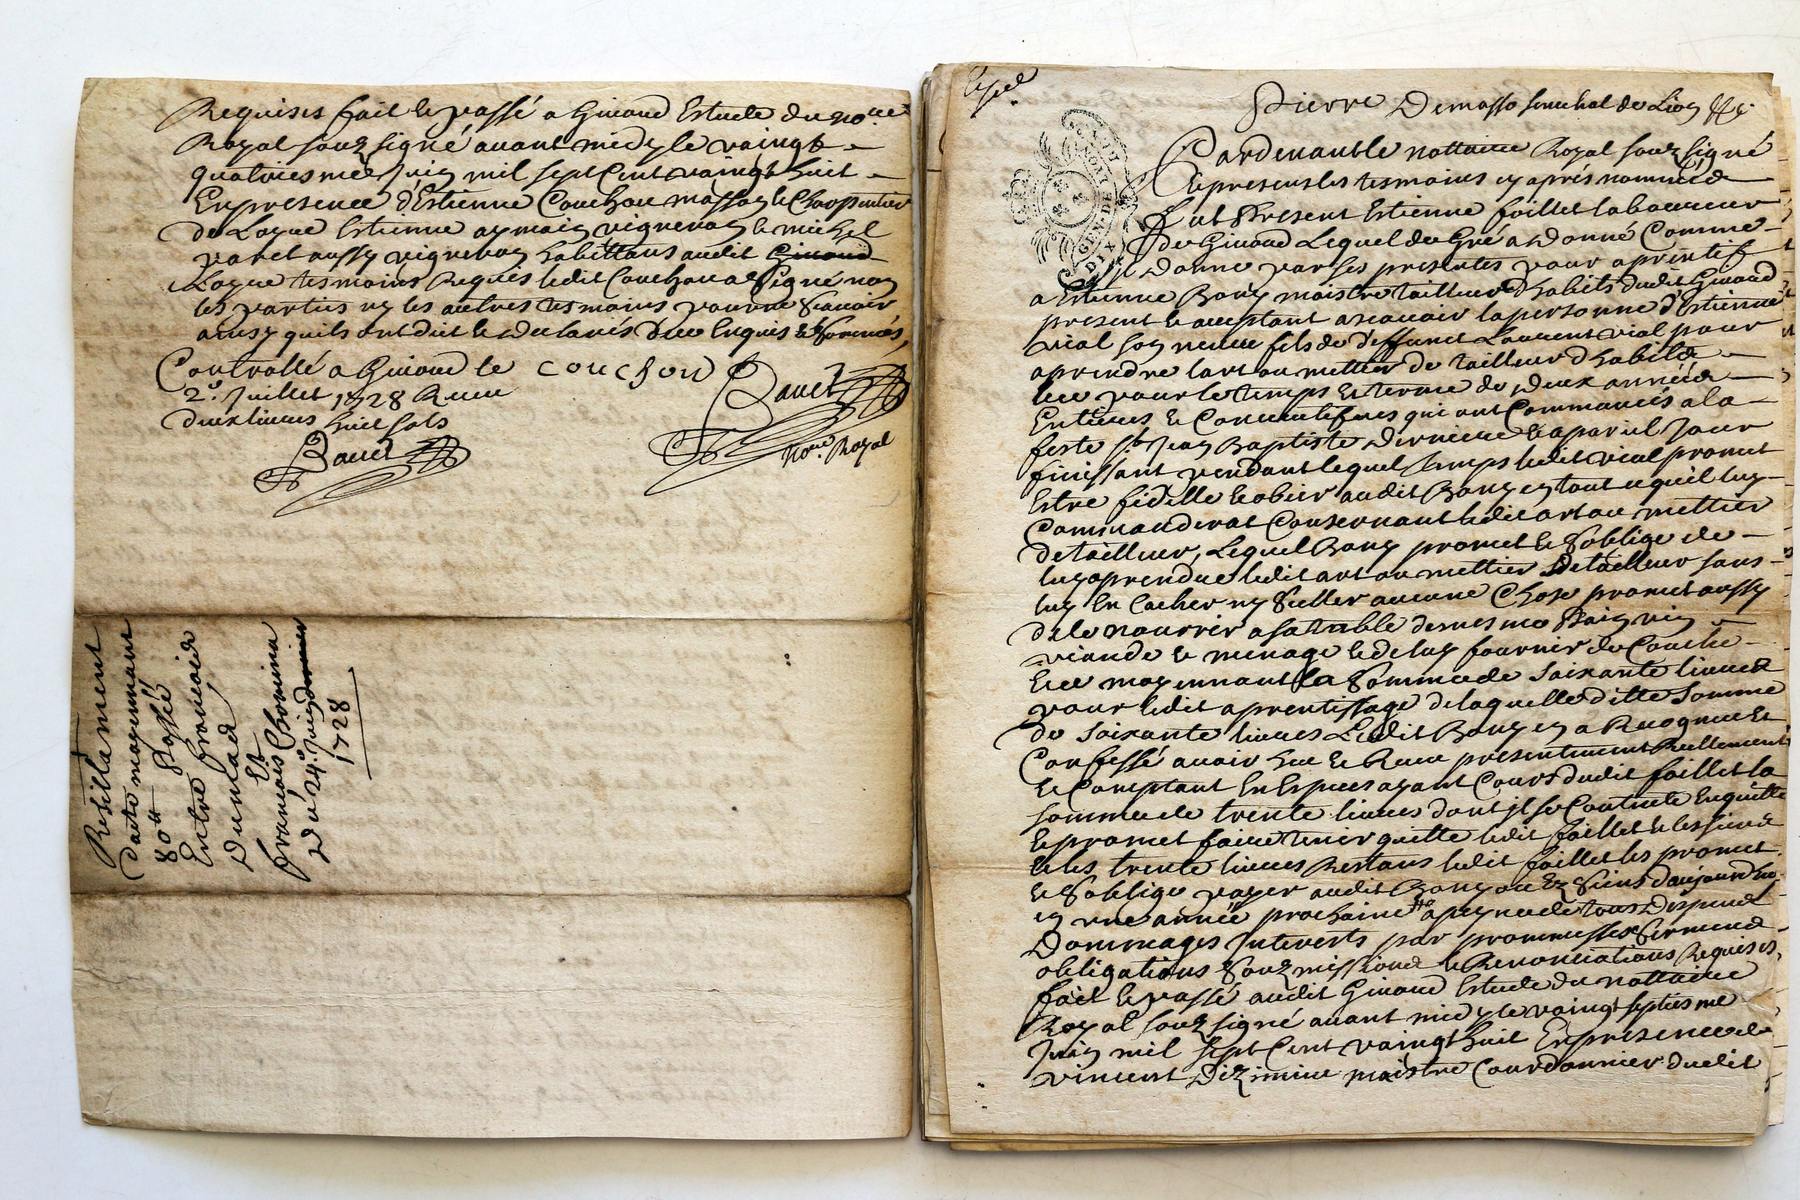 Requises fait & passé a Giraud Estude du no.re
Royal souz signé avant midy le vaingt
quatriesme Juin mil sept Cent vaingt huit
En presence d'Estienne Couchou masson & Charpentier
de Laque Estienne aymain vigneron & michel
aussy vigneron habittans audit Giraud
Laque tesmoins Requis ledit Couchou a Signé non
les parties ny les autres tesmoins pour ne Scavoir
ainsy quils ont dit & declarés de ce Enquis & Sommés
Controllé a Giraud le couchou
2.e Juillet 1728 Receu
deux livres huit sols
no.re Royal
Resillament
dacte moyennant
80tt Passé
Entre francoise
Dumad
Et
francois
Du 24.e Juin
1728
Pierre Demasso senechal de Lion
Pardevant le nottaire Royal souz signé
& presens les tesmoins cy apres nommés
fut Present Estienne faillet laboureur
de Giraud Lequel de Gré a Donné Comme
Donne par ses presentes pour aprentif
a Estienne Bony maistre tailleur d'habits dudit Giraud
present & acceptant ascavoir la personne d'Estienne
vial son neveu fils de deffunct Laurent vial pour
aprendre lart ou mettier de tailleur d'habits
Ce pour le temps & terme de deux années
Entieres & Consecutifves qui ont Commancés a la
feste st. Jean Baptiste Derniere & a pareil Jour
finissant pendant lequel temps ledit vial promet
Estre fidelle & obeir audit Bony en tout ce qu'il luy
Commanderat Consernant ledit art ou mettier
de tailleur, Lequel Bony promet & S'oblige de
luy aprendre ledit art ou mettier de tailleur sans
luy En Cacher ny Seller aucune Chose promet aussy
de le nourrir a sa table de mesme Pain vin
viande & menage & de luy fournir de Couche
& ce moyennant la Somme de Soixante livres
pour ledit aprentissage de laquelle ditte Somme
de Soixante livres Ledit Bony En a Recognu &
Confessé avoir heu & Receu presentement Reellement
& Comptant En Especes ayant Cours dudit faillet la
somme de trente livres dont Jl se Contente En quitte
& promet faire tenir quitte ledit faillet & les siens
& les trente livres Restans ledit faillet les promet
& S'oblige payer audit Bony ou Ez Siens d'aujourdhuy
en une année prochaine a peyne de tous Depens
Dommages Interests par promesses Serment
obligations Souzmissions & Renonciations Requises
fait & passé audit Giraud Estude du nottaire
Royal souz signé avant midy le vaingt septiesme
Juin mil sept Cent vaingt huit En presence de
vincent Dizimieu maistre Courdonnier dudit